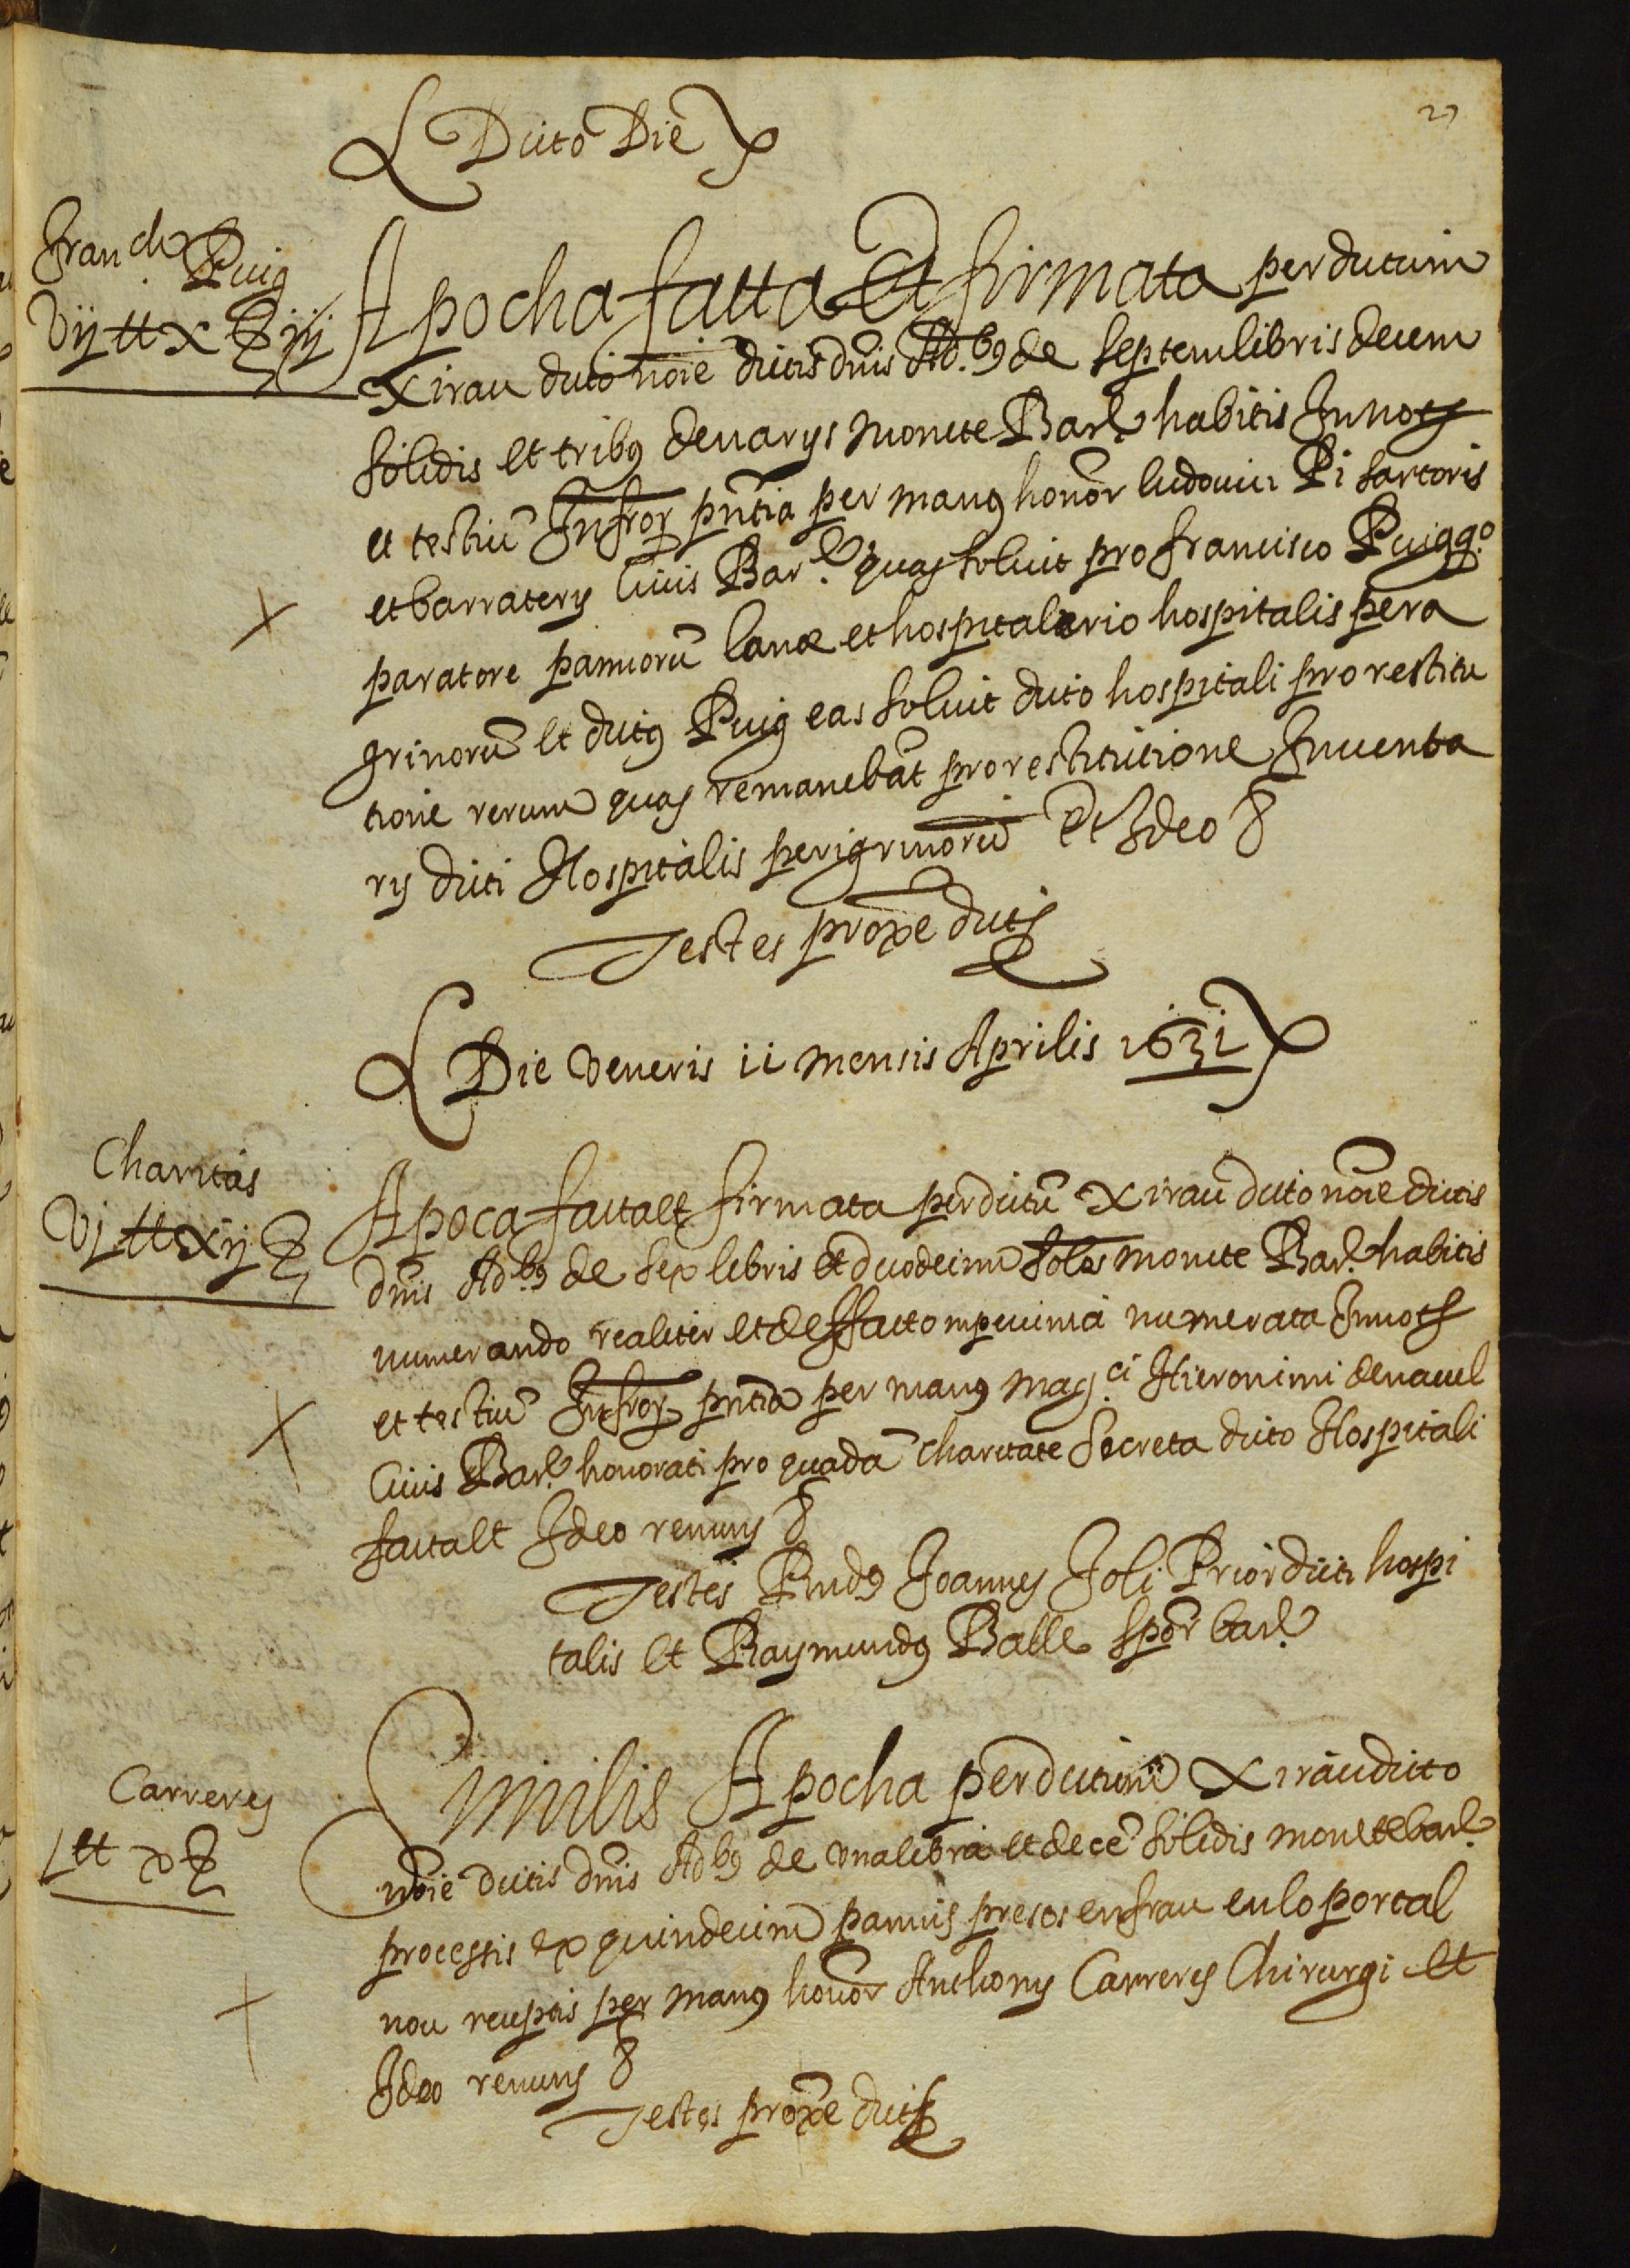 27
Dicto Die
Fran.ch Puig
Vij tt x ß iij
Apocha facta Et firmata per dictum
Xirau dicto noīe dictis dnīs Ad.bꝯ de septem libris decem
solidis et tribꝯ denarijs monete Barꝉ habitis In noty
et testiū Infror pntīa per manꝯ honor ludovici Pi sartoris
et barraterij Civis Barꝉ quas soluit pro francisco Puig q.º
paratore pannorū lanæ et hospitalerio hospitalis pera
grinorū et dictꝯ Puig eas soluit dicto hospitali pro restitu
tione rerum quas remanebāt pro restitutione Inventa
rij dicti Hospitalis perigrinorū Et Ideo &
Testes proxe dicts
Die Veneris 11 mensis Aprilis 1631
Charitas
Vj tt xij ß
Apoca facta et firmata per dictū Xirau dicto noīe dictis
dnīs Ad.bꝯ de sex libris et duodecim solˢ monete Barꝉ habitis
numerando realiter et de ffacto in pecunia numerata In noty
et testiū Infror pntīa per manꝯ mag.ci Hieronimi de navel
Civis Barꝉ honorati pro quadā charitate secreta dicto Hospitali
facta et Ideo renuns &
Testes Rndꝯ Joannes Joli Prior dicti hospi
talis et Raymundꝯ Balle scpōr barꝉ
Carreres
j tt x ß
Similis Apocha per dictum Xirau dicto
noīe dictis dnīs Ad bꝯ de una libra et decē solidis monete barꝉ
processis ex quindecim pannis presos en frau en lo portal
nou receptis per manꝯ honōr Anthonij Carreres Chirurgi et
Ideo renuns &
Testes proxe dicts